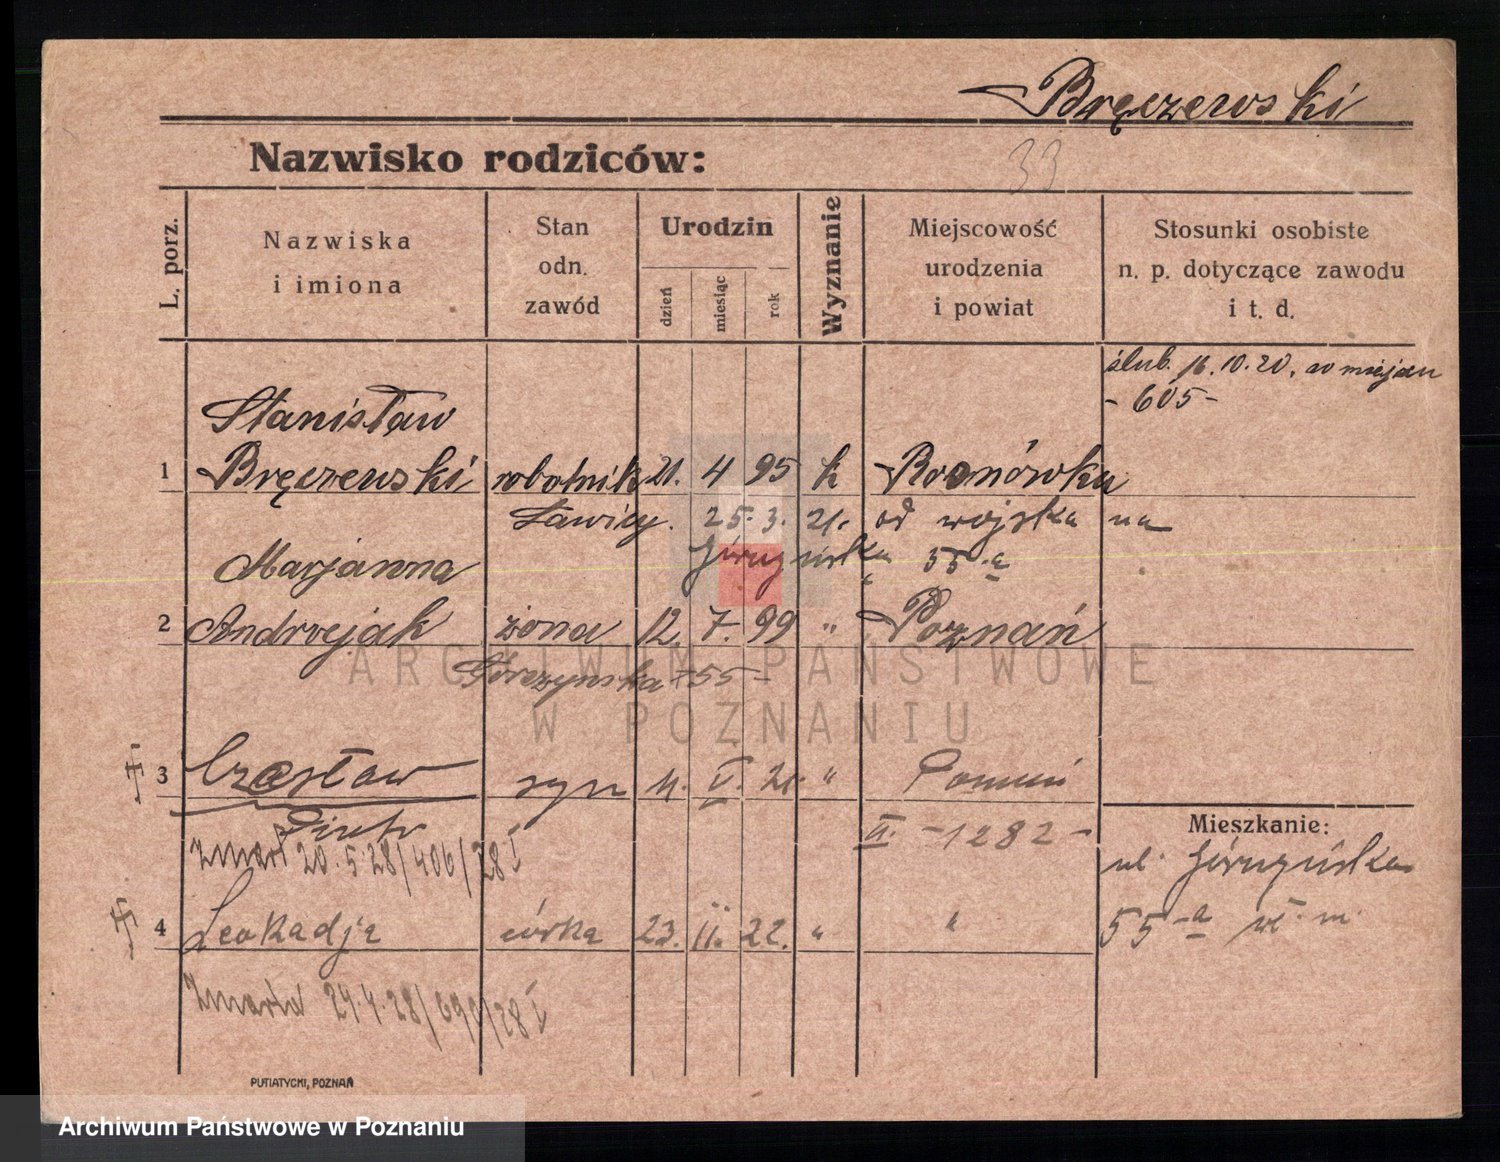 Bręczewski
Nazwisko rodziców:
33
L. porz.
Nazwiska
i imiona
Stan
odn.
zawód
Urodzin
dzień
miesiąc
rok
Wyznanie
Miejscowość
urodzenia
i powiat
Stosunki osobiste
n. p. dotyczące zawodu
i t. d.
ślub. 16.10.20, w miejscu
- 605 -
Stanisław
1 Bręczewski robotnik 21. 4 95 k
Ławicy. 25. 3. 21. od wojska na
Górczyńska 55 a
Marjanna
2 Andrzejak żona 12. 7. 99 " Poznań
Górczyńska 55 -
3 Czesław syn 4. V. 21. " Poznań
Piotr
II. - 1282 -
zmarł 20.5.28/406/28 I
Mieszkanie:
ul. Górczyńska
55 a wł. m.
4 Leokadja córka 23. II. 22. " "
Zmarła 29.4.28/ /28 I
PUTIATYCKI, POZNAŃ
ARCHIWUM PAŃSTWOWE
W POZNANIU
Archiwum Państwowe w Poznaniu